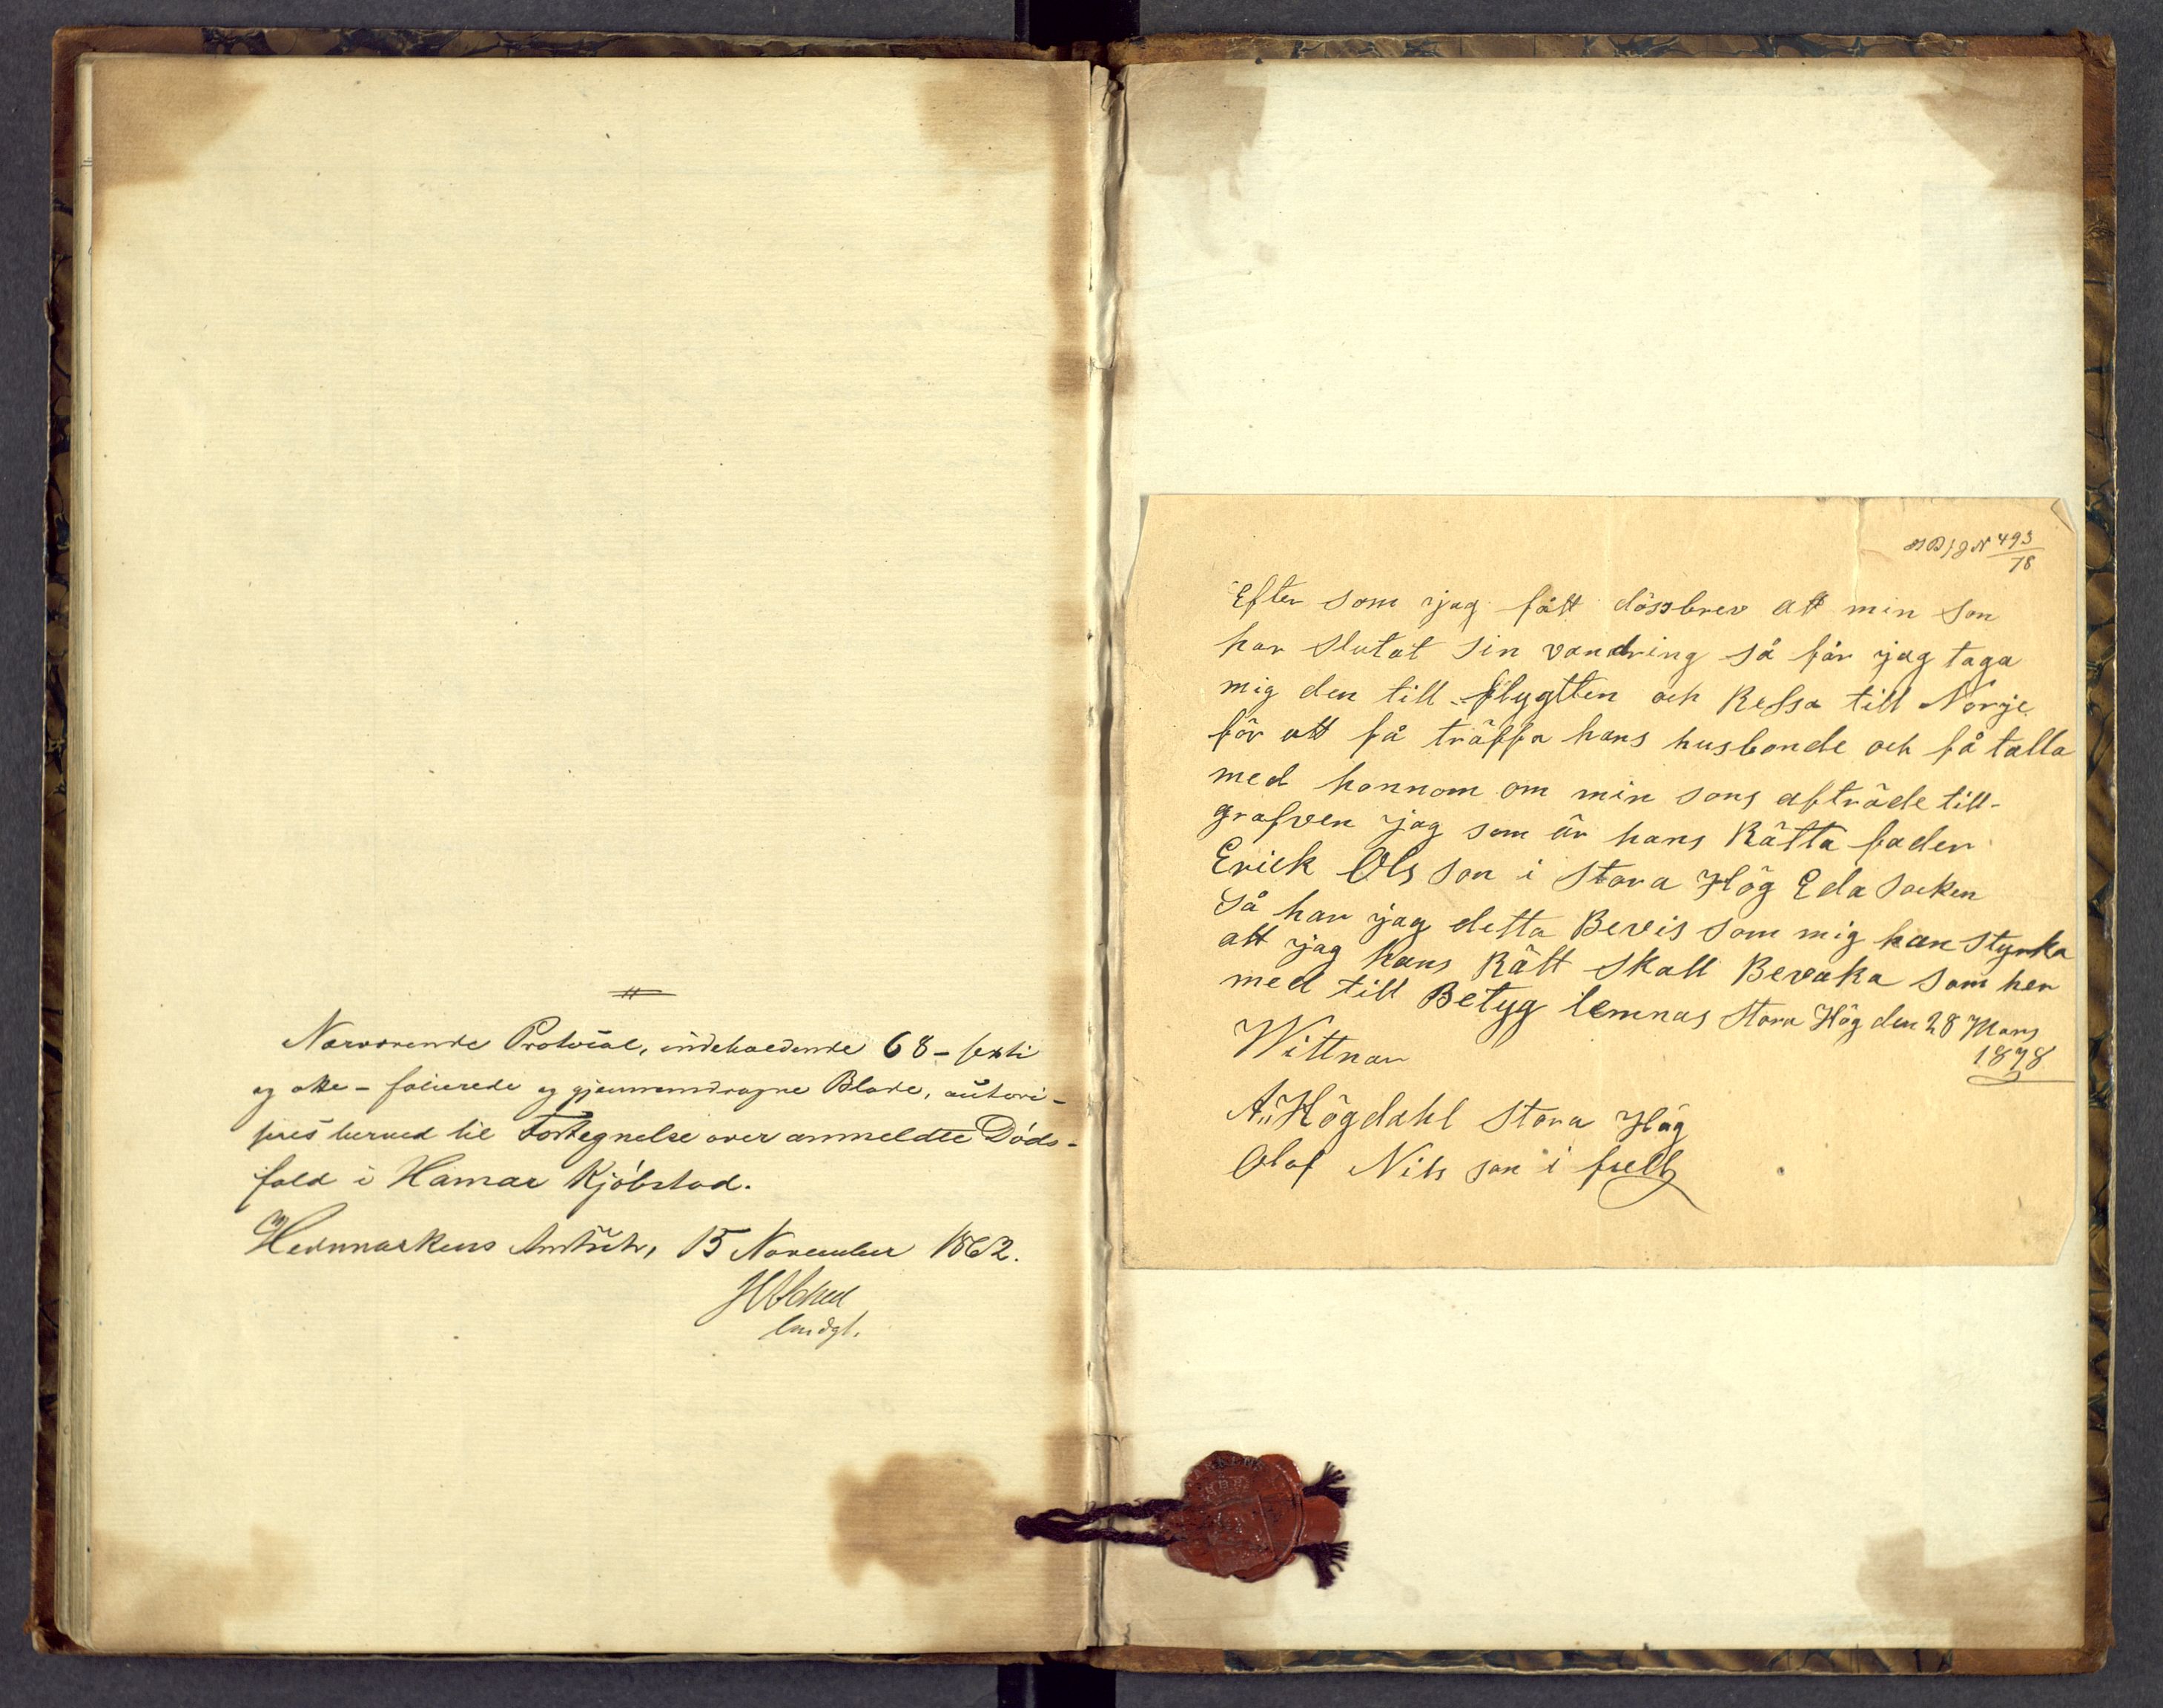 Nærværende Protocol, indeholdende 68 - sexti
og otte - folierede og gjennemdragne Blade, autori-
seres herved til Fortegnelse over anmeldte Døds-
fald i Hamar Kjøbstad.
Hedemarkens Amt, 15 November 1862.
493
78
Efter som jag fått dössbrev att min son
har slutat sin vandring så får jag taga
mig den till flygtten och Ressa till Norje
för att få träffa hans husbonde och få talla
med honnom om min sons afträde till-
grafven jag som är hans Rätta fader
Erick Ols son i Stora Hög Eda Socken
Så har jag detta Bevis som mig kan styrka
att jag hans Rätt skall Bevaka som her
med till Betyg lemnas Stora Hög den 28 Mars
1878
Wittnar
A. Högdahl Stora Hög
Olof Nils son i